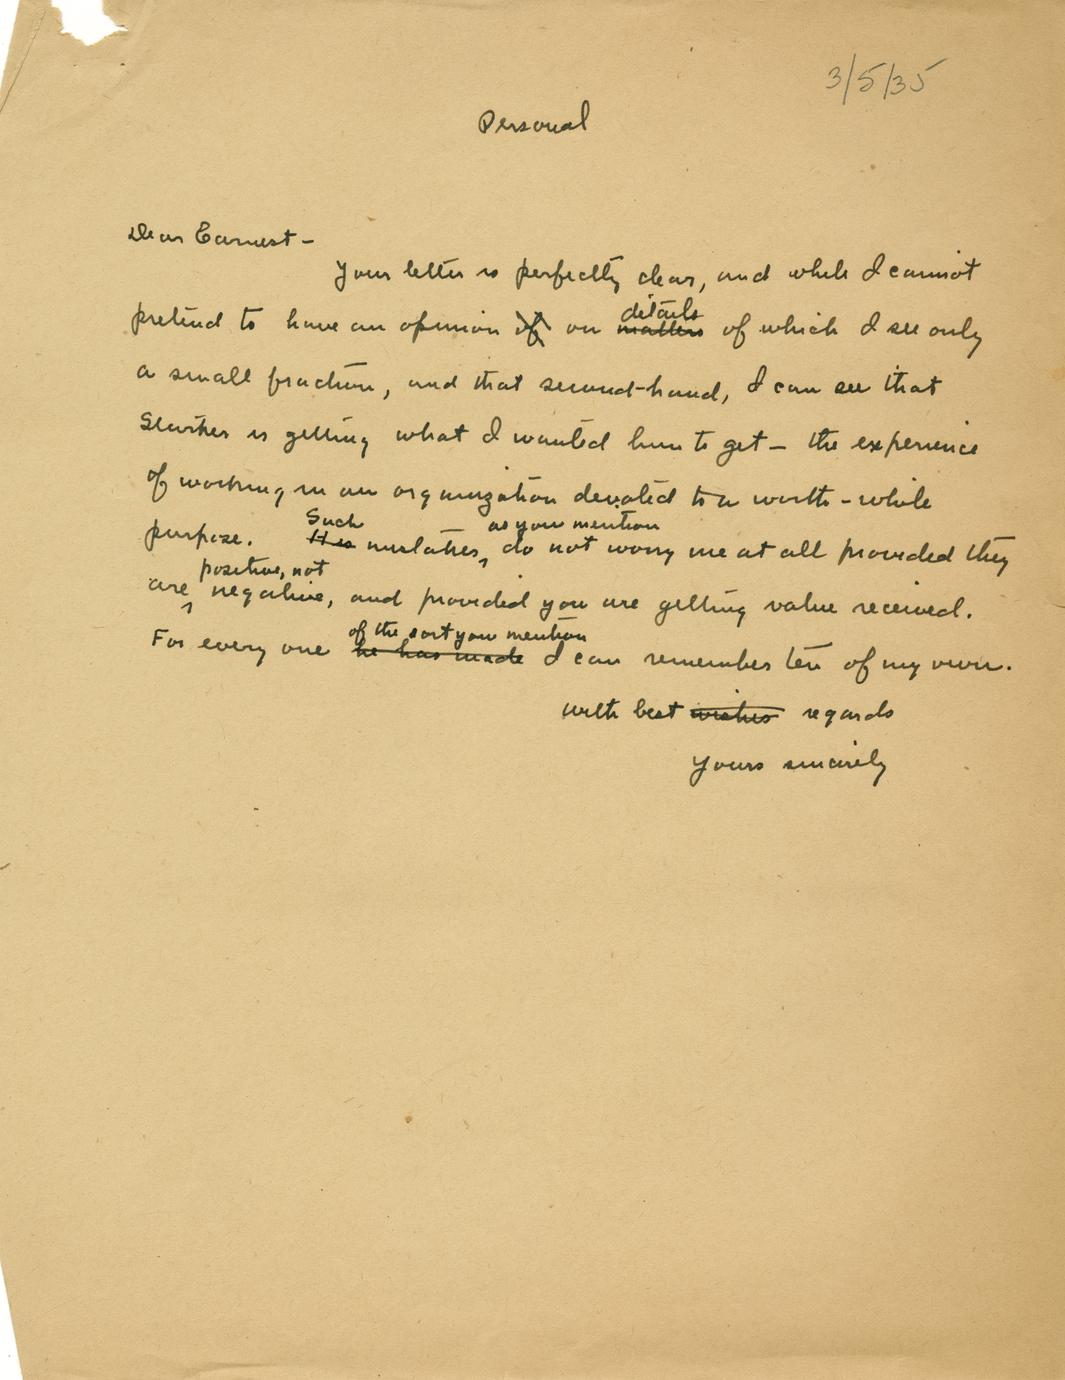 3/5/35
Personal
Dear Earnest –
Your letter is perfectly clear, and while I cannot
details
pretend to have an opinion of on matters of which I see only
a small fraction, and that second-hand, I can see that
is getting what I wanted him to get – the experience
of working in an organization devoted to a worth-while
Such as you mention
purpose. His mistakes, do not worry me at all provided they
positive, not
are negative, and provided you are getting value received.
of the sort you mention
For every one he has made I can remember ten of my own.
With best wishes regards
Yours sincerely